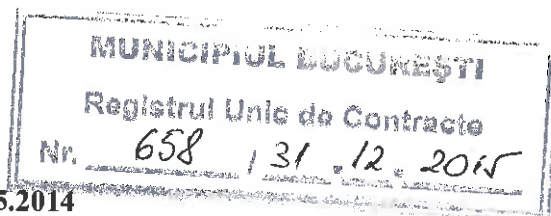 MUNICIPIUL BUCUREŞTI
Registrul Unic de Contracte
Nr. 658 / 31 . 12 . 2015
5.2014